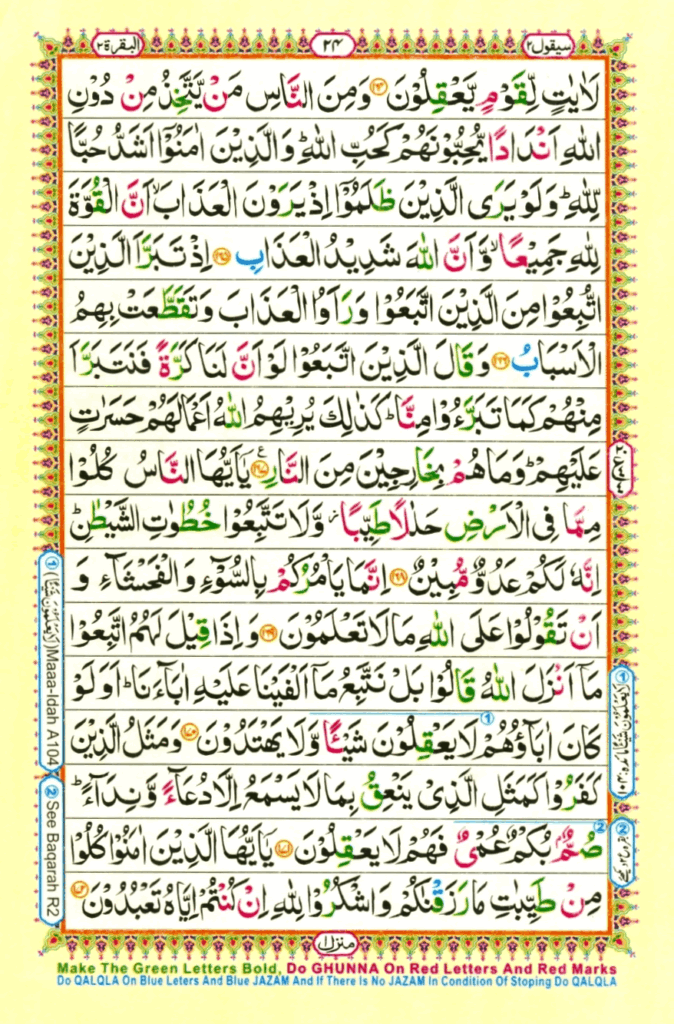 سیقول ۲
۲۴
البقرة ۲
لَاٰیٰتٍ لِّقَوْمٍ یَّعْقِلُوْنَ ﴿۱۶۴﴾ وَمِنَ النَّاسِ مَنْ یَّتَّخِذُ مِنْ دُوْنِ
اللّٰهِ اَنْدَادًا یُّحِبُّوْنَهُمْ كَحُبِّ اللّٰهِ ؕ وَالَّذِیْنَ اٰمَنُوْۤا اَشَدُّ حُبًّا
لِّلّٰهِ ؕ وَلَوْ یَرَی الَّذِیْنَ ظَلَمُوْۤا اِذْ یَرَوْنَ الْعَذَابَ ۙ اَنَّ الْقُوَّةَ
لِلّٰهِ جَمِیْعًا ۙ وَّاَنَّ اللّٰهَ شَدِیْدُ الْعَذَابِ ﴿۱۶۵﴾ اِذْ تَبَرَّاَ الَّذِیْنَ
اتُّبِعُوْا مِنَ الَّذِیْنَ اتَّبَعُوْا وَرَاَوُا الْعَذَابَ وَتَقَطَّعَتْ بِهِمُ
الْاَسْبَابُ ﴿۱۶۶﴾ وَقَالَ الَّذِیْنَ اتَّبَعُوْا لَوْ اَنَّ لَنَا كَرَّةً فَنَتَبَرَّاَ
مِنْهُمْ كَمَا تَبَرَّءُوْا مِنَّا ؕ كَذٰلِكَ یُرِیْهِمُ اللّٰهُ اَعْمَالَهُمْ حَسَرٰتٍ
عَلَیْهِمْ ؕ وَمَا هُمْ بِخٰرِجِیْنَ مِنَ النَّارِ ﴿۱۶۷﴾ ع یٰۤاَیُّهَا النَّاسُ كُلُوْا
مِمَّا فِی الْاَرْضِ حَلٰلًا طَیِّبًا ۖ وَّلَا تَتَّبِعُوْا خُطُوٰتِ الشَّیْطٰنِ ؕ
اِنَّهٗ لَكُمْ عَدُوٌّ مُّبِیْنٌ ﴿۱۶۸﴾ اِنَّمَا یَاْمُرُكُمْ بِالسُّوْٓءِ وَالْفَحْشَآءِ وَ
اَنْ تَقُوْلُوْا عَلَی اللّٰهِ مَا لَا تَعْلَمُوْنَ ﴿۱۶۹﴾ وَاِذَا قِیْلَ لَهُمُ اتَّبِعُوْا
مَاۤ اَنْزَلَ اللّٰهُ قَالُوْا بَلْ نَتَّبِعُ مَاۤ اَلْفَیْنَا عَلَیْهِ اٰبَآءَنَا ؕ اَوَلَوْ
كَانَ اٰبَآؤُهُمْ لَا یَعْقِلُوْنَ شَیْـًٔا وَّلَا یَهْتَدُوْنَ ﴿۱۷۰﴾ وَمَثَلُ الَّذِیْنَ
كَفَرُوْا كَمَثَلِ الَّذِیْ یَنْعِقُ بِمَا لَا یَسْمَعُ اِلَّا دُعَآءً وَّنِدَآءً ؕ
صُمٌّۢ بُكْمٌ عُمْیٌ فَهُمْ لَا یَعْقِلُوْنَ ﴿۱۷۱﴾ یٰۤاَیُّهَا الَّذِیْنَ اٰمَنُوْا كُلُوْا
مِنْ طَیِّبٰتِ مَا رَزَقْنٰكُمْ وَاشْكُرُوْا لِلّٰهِ اِنْ كُنْتُمْ اِیَّاهُ تَعْبُدُوْنَ ﴿۱۷۲﴾
① (لَا یَعْلَمُوْنَ شَیْـًٔا) Maaa-Idah A104
② See Baqarah R2
منزل ۱
Make The Green Letters Bold, Do GHUNNA On Red Letters And Red Marks
Do QALQLA On Blue Leters And Blue JAZAM And If There Is No JAZAM In Condition Of Stoping Do QALQLA